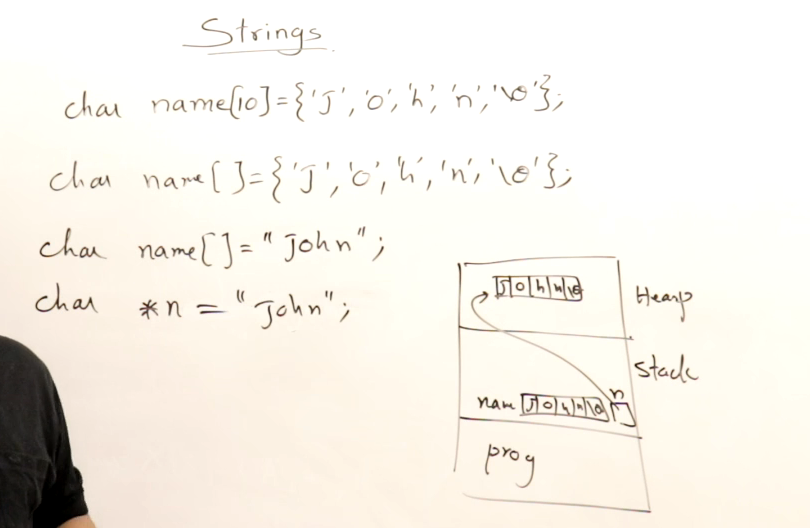 Strings
char name[10]={'J','o','h','n','\0'};
char name[]={'J','o','h','n','\0'};
char name[]="John";
char *n = "John";
J o h n \0
Heap
Stack
n
name J o h n \0
prog